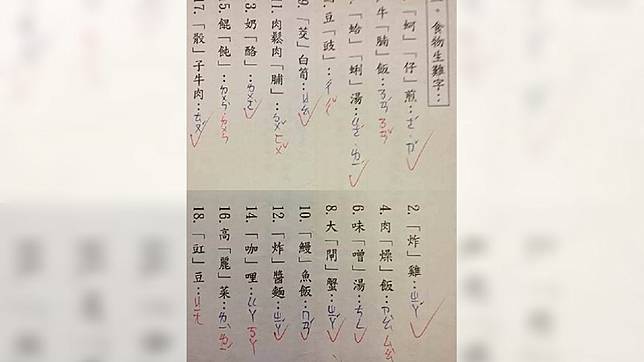 食物生難字：
「蚵」「仔」煎：
2.「炸」雞：ㄓㄚˊ
牛「腩」飯：ㄋㄢˇ
4. 肉「燥」飯：ㄗㄠˋ ㄙㄠˋ
「蛤」「蜊」湯：ㄍㄜˊ ㄌㄧˊ
6. 味「噌」湯：ㄘㄥ
豆「豉」：ㄔˇ
8. 大「閘」蟹：ㄓㄚˊ
9.「茭」白筍：ㄐㄧㄠ
10.「鰻」魚飯：ㄇㄢˊ
11. 肉鬆肉「脯」：ㄆㄨˇ ㄈㄨˇ
12.「炸」醬麵：ㄓㄚˊ
3. 奶「酪」：ㄌㄨㄛˋ
14.「咖」哩：
5. 餛「飩」：
16. 高「麗」菜：ㄌㄧˋ ㄌㄧˊ
17.「骰」子牛肉：
18.「豇」豆：ㄐㄧㄤ